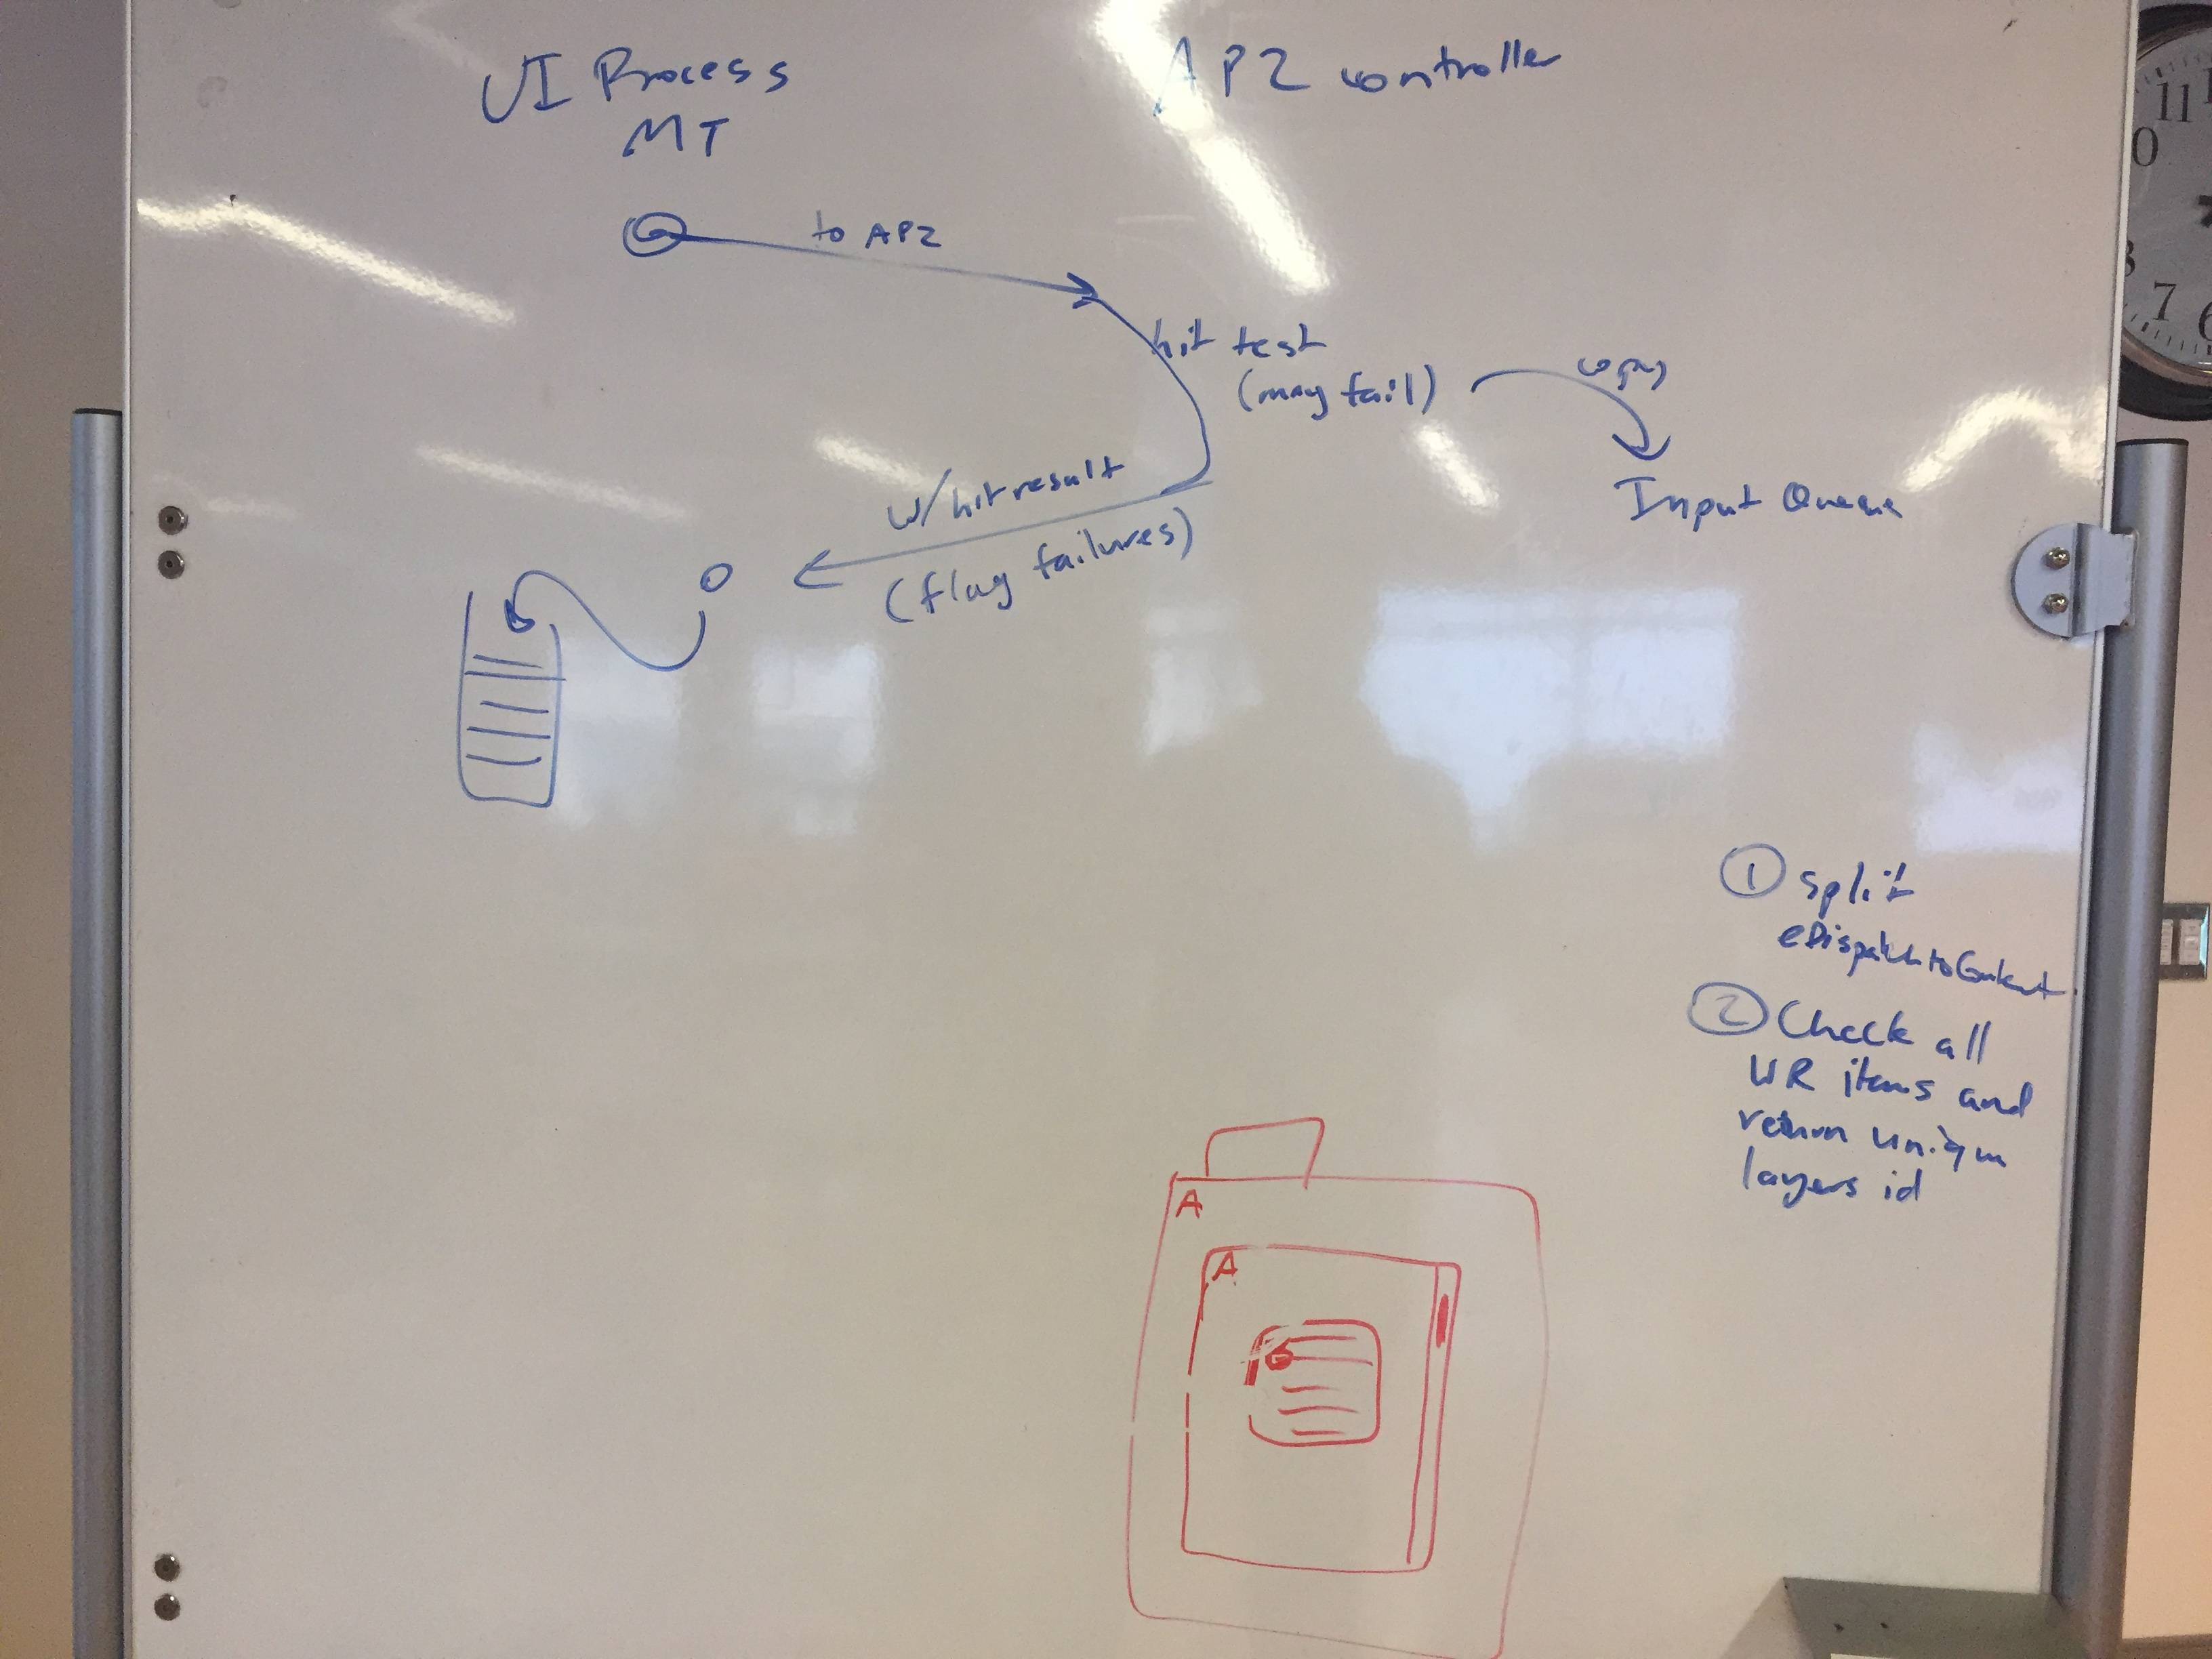 UI Process
MT
APZ controller
to APZ
hit test
(may fail)
copy
Input Queue
w/ hit result
(flag failures)
① split
eDispatchtoContent
② Check all
WR items and
return uniqm
layers id
A
A
11
7
6